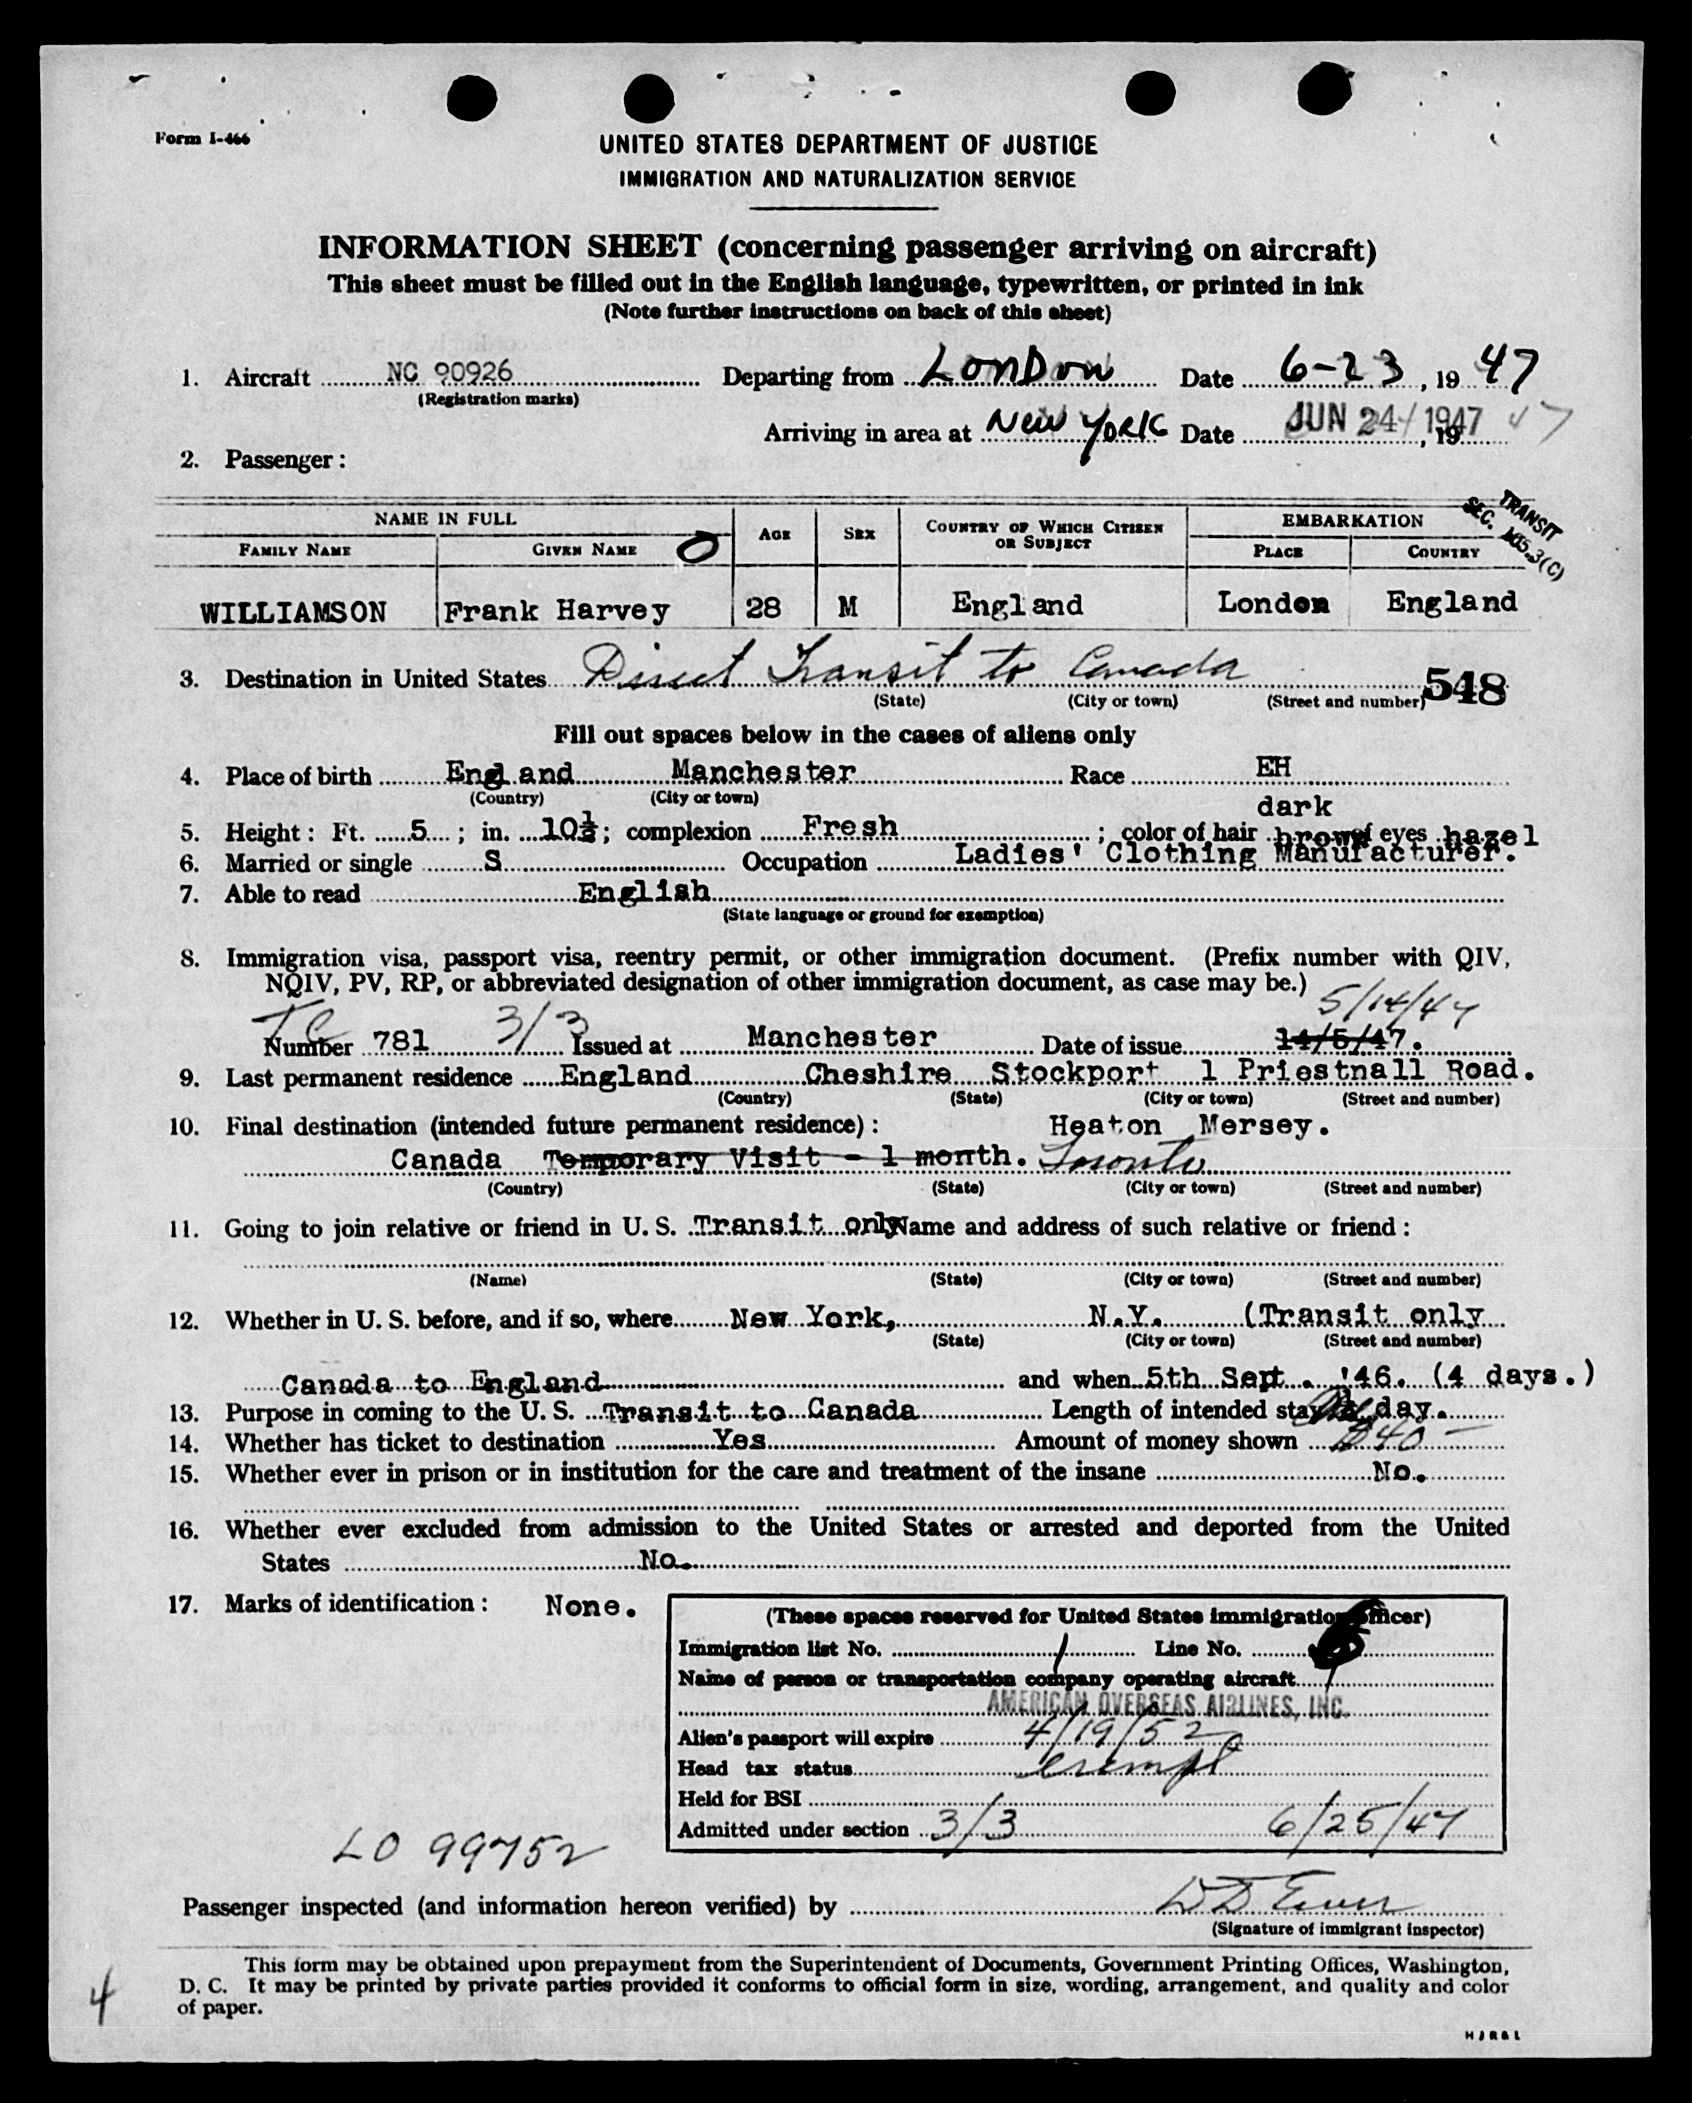 Form I-466
UNITED STATES DEPARTMENT OF JUSTICE
IMMIGRATION AND NATURALIZATION SERVICE
INFORMATION SHEET (concerning passenger arriving on aircraft)
This sheet must be filled out in the English language, typewritten, or printed in ink
(Note further instructions on back of this sheet)
1. Aircraft NC 90926 Departing from London Date 6-23, 1947
(Registration marks)
Arriving in area at New York Date JUN 24 1947, 19 47
2. Passenger:
TRANSIT
SEC. 105.3(C)
NAME IN FULL AGE SEX COUNTRY OF WHICH CITIZEN OR SUBJECT EMBARKATION
FAMILY NAME GIVEN NAME PLACE COUNTRY
WILLIAMSON Frank Harvey 28 M England London England
3. Destination in United States Direct Transit to Canada 548
(State) (City or town) (Street and number)
Fill out spaces below in the cases of aliens only
4. Place of birth England Manchester Race EH
(Country) (City or town)
dark
5. Height: Ft. 5; in. 10½; complexion Fresh; color of hair brown of eyes hazel
6. Married or single S Occupation Ladies' Clothing Manufacturer.
7. Able to read English
(State language or ground for exemption)
8. Immigration visa, passport visa, reentry permit, or other immigration document. (Prefix number with QIV,
NQIV, PV, RP, or abbreviated designation of other immigration document, as case may be.)
5/14/47
Number TC 781 3/3 Issued at Manchester Date of issue 14/5/47.
9. Last permanent residence England Cheshire Stockport 1 Priestnall Road.
(Country) (State) (City or town) (Street and number)
10. Final destination (intended future permanent residence): Heaton Mersey.
Canada Temporary Visit - 1 month. Toronto
(Country) (State) (City or town) (Street and number)
11. Going to join relative or friend in U. S. Transit only Name and address of such relative or friend:
(Name) (State) (City or town) (Street and number)
12. Whether in U. S. before, and if so, where New York, N.Y. (Transit only
(State) (City or town) (Street and number)
Canada to England and when 5th Sept. '46. (4 days.)
13. Purpose in coming to the U. S. Transit to Canada Length of intended stay day.
14. Whether has ticket to destination Yes Amount of money shown $40 —
15. Whether ever in prison or in institution for the care and treatment of the insane No.
16. Whether ever excluded from admission to the United States or arrested and deported from the United
States No.
17. Marks of identification: None.
(These spaces reserved for United States immigration officer)
Immigration list No. 1 Line No.
Name of person or transportation company operating aircraft
AMERICAN OVERSEAS AIRLINES, INC.
Alien's passport will expire 4/19/52
Head tax status exempt
Held for BSI
Admitted under section 3/3 6/25/47
LO 99752
Passenger inspected (and information hereon verified) by
(Signature of immigrant inspector)
This form may be obtained upon prepayment from the Superintendent of Documents, Government Printing Offices, Washington,
D. C. It may be printed by private parties provided it conforms to official form in size, wording, arrangement, and quality and color
of paper.
4
H J R & L